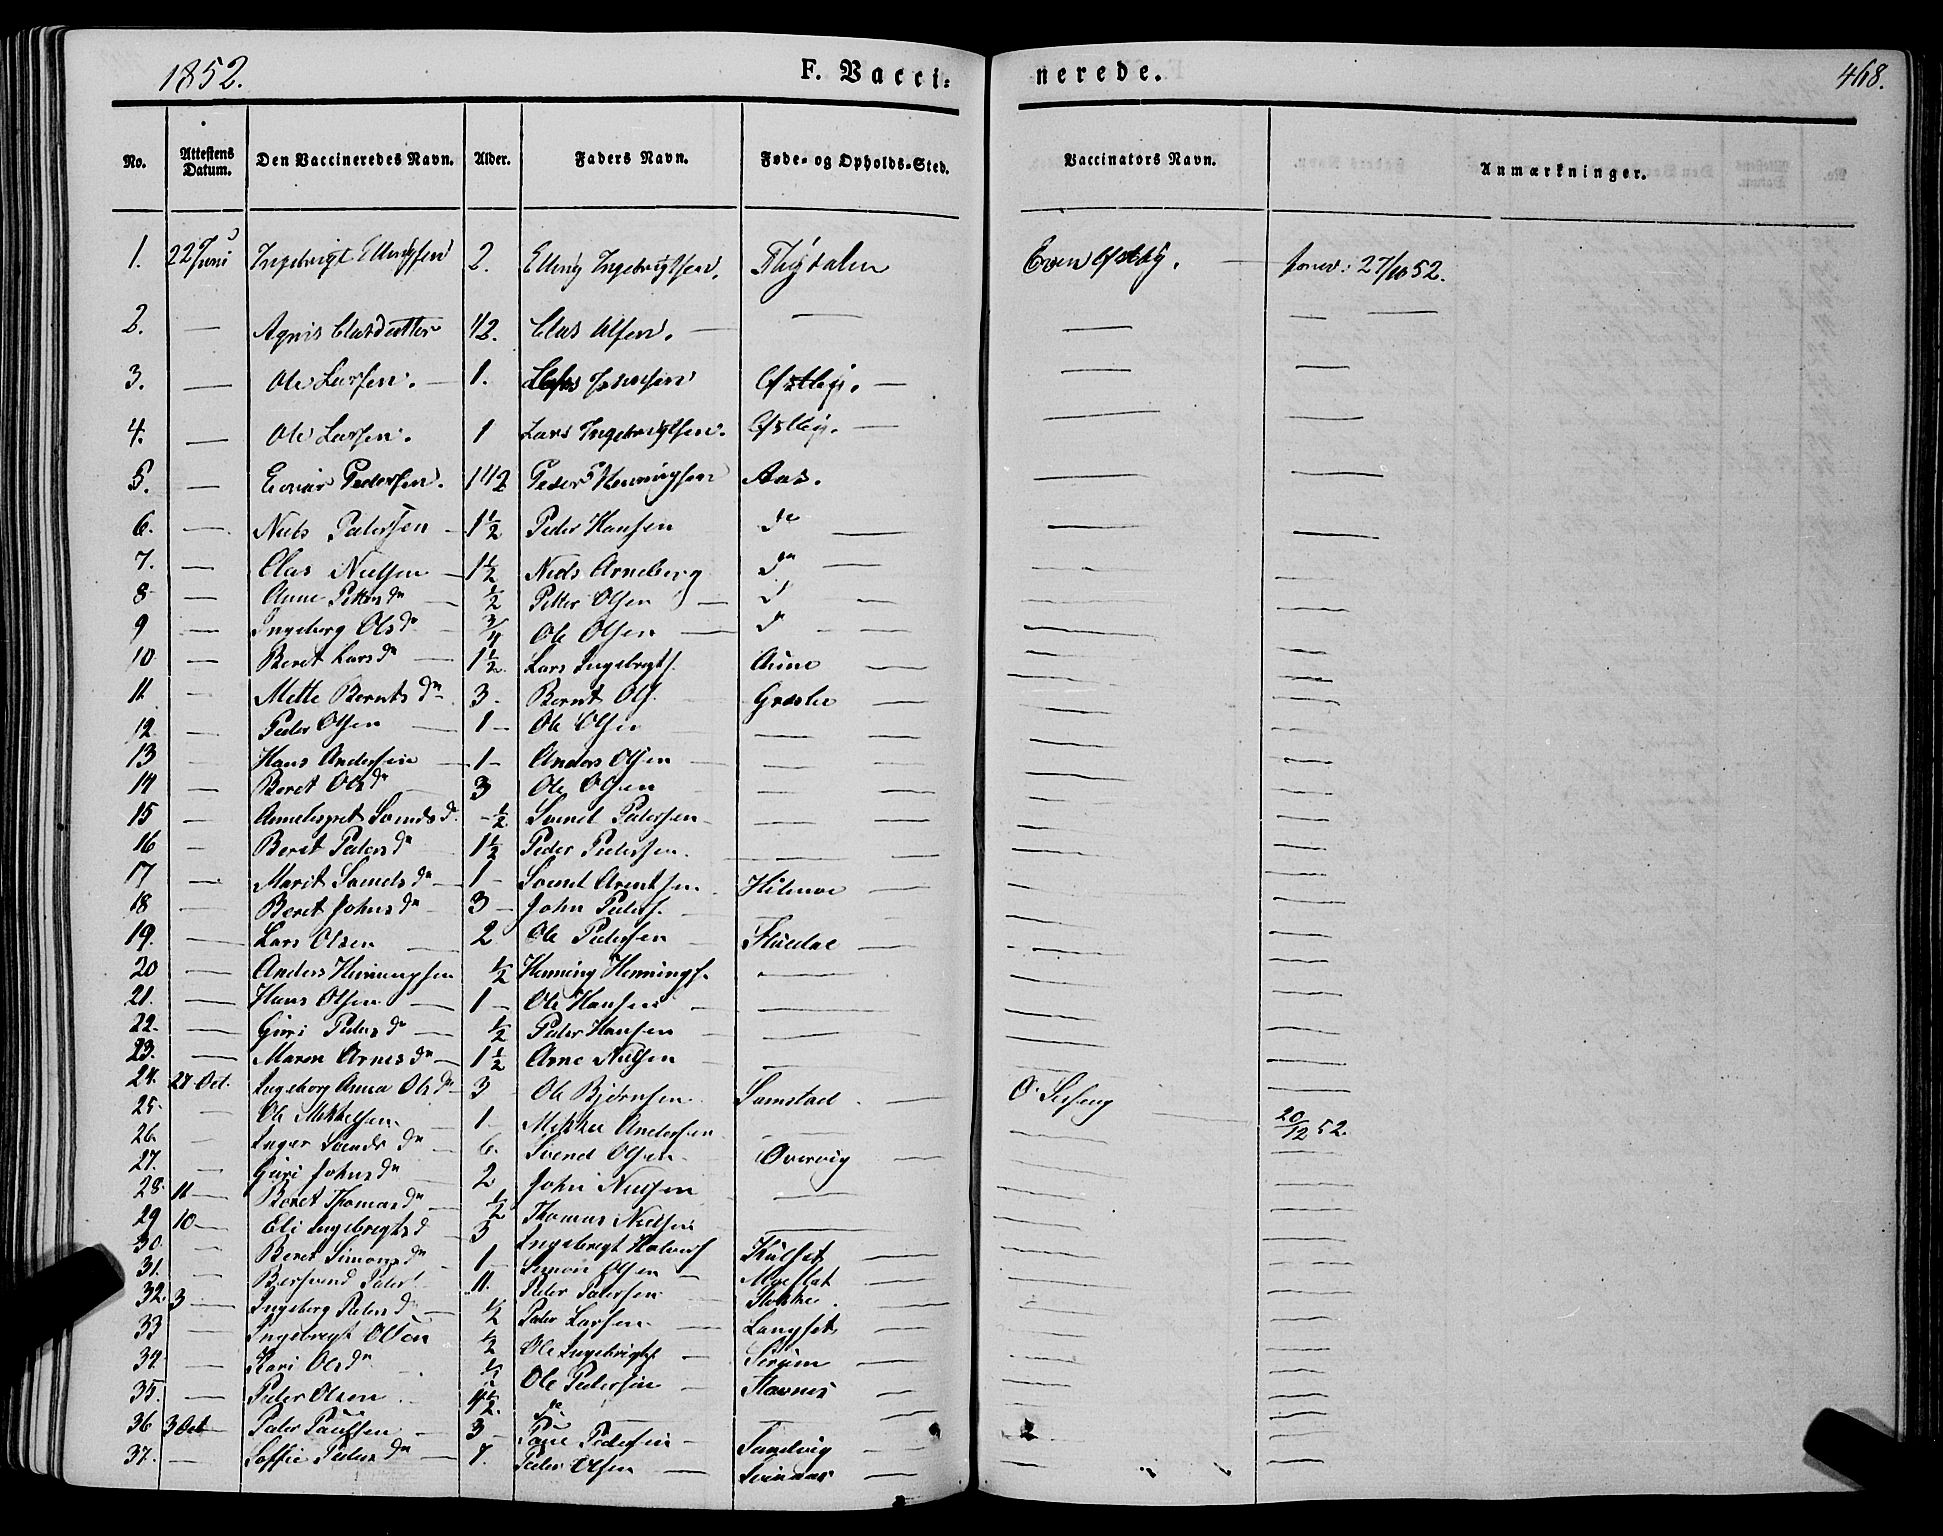 1852. F. Vacci: nerede. 468.
No. Attestens Datum. Den Vaccineredes Navn. Alder. Faders Navn. Føde- og Opholds-Sted. Vaccinators Navn. Anmærkninger.
1. 22 Juni Ingebrigt Ellingsen 2. Elling Ingebrigtsen. Thydalen Even Østby. — 27/10 52.
2. — Agnis Clasdatter 1/2. Clas Olsen. — — — — —
3. — Ole Larsen. — 1. Lars Østby. — — —
4. — Ole Larsen. 1 Lars Ingebrigtsen. Østby. — — —
5. — Einar Pedersen. 1 1/2 Peder Henningsen Aas. — —
6. — Niels Pedersen — 1 1/2 Peder Hansen do — — —
7. — Olas Nielsen — 1 1/2 Niels Arneberg do — — —
8 — Anne Petters dr — 1/2 Petter Olsen — d — — —
9 — Ingeborg Ols dr — 3/4 Ole Olsen — d — — — —
10 — Beret Lars dr — 1 1/2 Lars Ingebrigts. Aune — — —
11. — Mette Bernts dr 3 - Bernt Ols. Græsli — — —
12 — Peder Olsen — 1 — Ole Olsen — — — —
13 — Hans Andersen — 1 — Anders Olsen — — — — —
14 — Beret Ols dr 3 Ole Olsen — — — — —
15 — Annebergret Svends d. - 1/2 Svend Pedersen — — — — —
16 — Beret Peders dr 1 1/2 Peder Pedersen. — — — —
17 — Marit Svends dr — 1 — Svend Arentsen Hilmoe — — —
18 — Beret Johns dr — 3 — John Peders. — — —
19. — Lars Olsen — 2 Ole Pedersen — — — —
20 — Anders Henningsen 1/2 Henning Hennings. — — —
21. — Hans Olsen — 1 — Ole Hansen — — — —
22. — Guri Peders dr — 1/2 Peder Hansen — — —
23. — Maren Arnes dr — 1 1/2 Arne Nielsen — — — —
24. 27 Oct. Ingeborg Anna Ols dr — 3 — Ole Bjørnsen Samstad. — O. —
25. — Ole Mikkelsen — 1 — Mikkel Andersen — — 20/12 52.
26. — Inger Svends dr — 6. Svend Olsen — Overvig — — —
27. — Guri Johns dr 2 John Nielsen — — —
28. 11 — Beret Thomas dr 1/2 Thomas Nielsen — — —
29 10 — Eli Ingebrigts d 3 Ingebrigt Halvors Kulset — — —
30. — Beret Simons dr 1 — Simon Olsen — Moeslet — — —
31. — Bersvend Peders. 11. Peder Pedersen Stokke. — — —
32. 3 — Ingeborg Peders d — 1/2 Peder Larsen — Langset — — —
33 — Ingebrigt Olsen 1/2 Ole Ingebrigts — — — —
34. — Kari Ols dr 1/2 Ole Pedersen — Stavnes — — —
35. — Peder Olsen 4 1/2. do — — — —
36 3 Oct — Peder Paulsen — 3 — Pedersen — Sandvig — —
37. — Soffie Peders dr — 7. Peder Olsen — Svinaas — — —